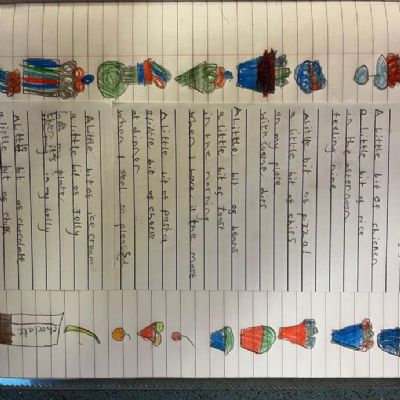 A little bit of chicken
a little bit of rice
in the afternoon
feeling nice
A little bit of pizza
a little bit of chips
on my place
with some dips
A little bit of beans
a little bit of toast
in the morning
when I want it the most
A little bit of pasta
a little bit of cheese
at dinner
when I feel so pleased
A little bit of ice cream
a little bit of Jelly
on my plate
then it's in my belly
A little bit of chocolate
a little bit of